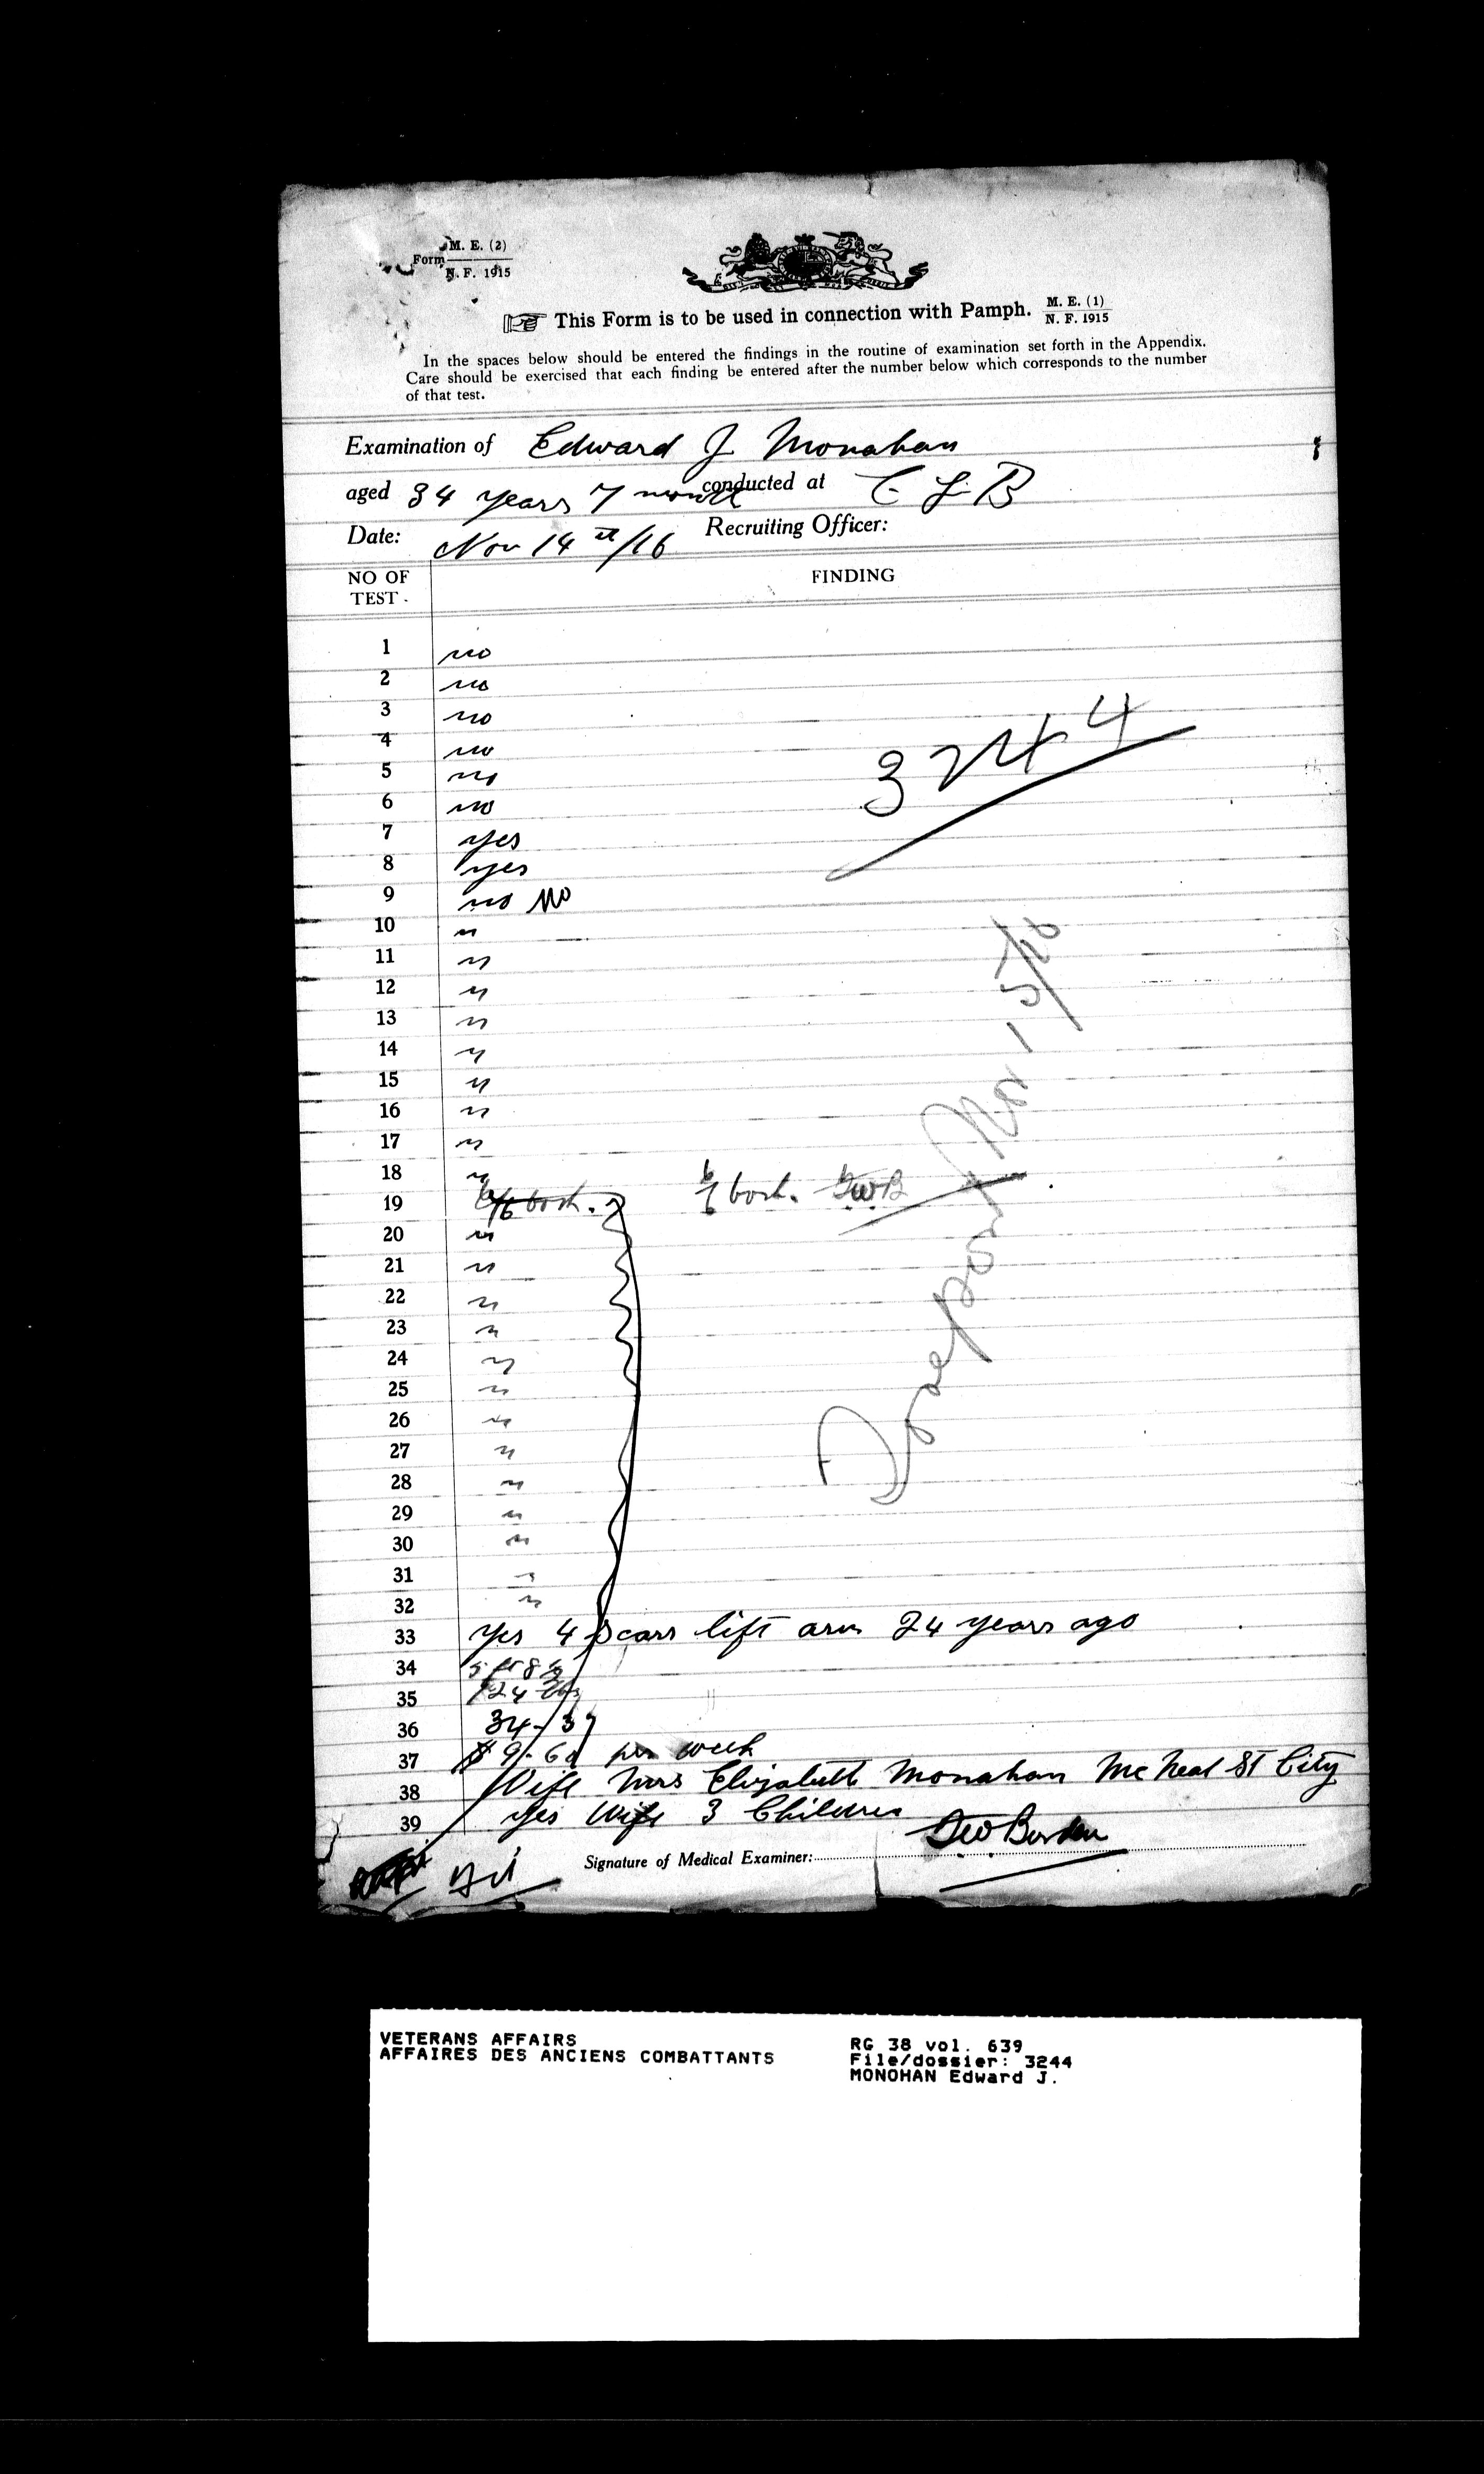 M. E. (2)
Form
N. F. 1915
This Form is to be used in connection with Pamph. M. E. (1)
N. F. 1915
In the spaces below should be entered the findings in the routine of examination set forth in the Appendix.
Care should be exercised that each finding be entered after the number below which corresponds to the number
of that test.
Examination of Edward J Monahan
aged 34 years 7 month conducted at C L B
Date: Nov 14th/16 Recruiting Officer:
NO OF TEST. FINDING
1 no
2 no
3 no
3244
4 no
5 no
6 no
7 yes
8 yes
9 no No
10 n
11 n
12 n
13 n
14 n
15 n
16 n
17 n
18 n
19 6/6 both. 6/6 both. GWB
20 n
21 n
22 n
23 n
24 n
25 n
26 n
27 n
28 n
29 n
30 n
31
32 n
Nov 15/16
33 yes 4 scars lift arm 24 years ago
34 5 ft 8 1/2
35 124 lbs
36 34-37
37 $9.60 per week
38 Wife Mrs Elizabeth Monahan McNeal St City
39 yes Wife 3 Children
Signature of Medical Examiner:
VETERANS AFFAIRS
AFFAIRES DES ANCIENS COMBATTANTS
RG 38 vol. 639
File/dossier: 3244
MONOHAN Edward J.